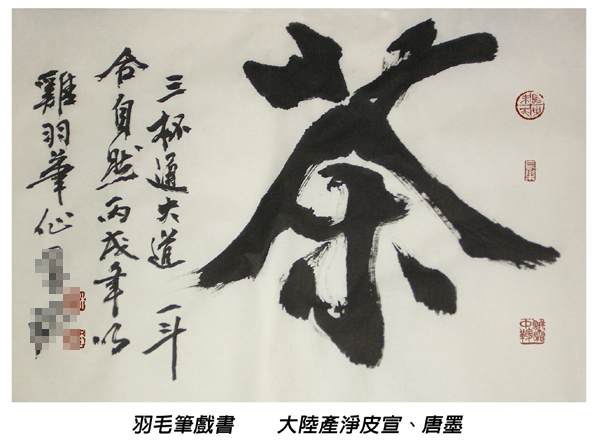 茶
三杯通大道一斗
合自然丙戌年以
雞羽筆作
羽毛筆戲書 大陸產淨皮宣、唐墨